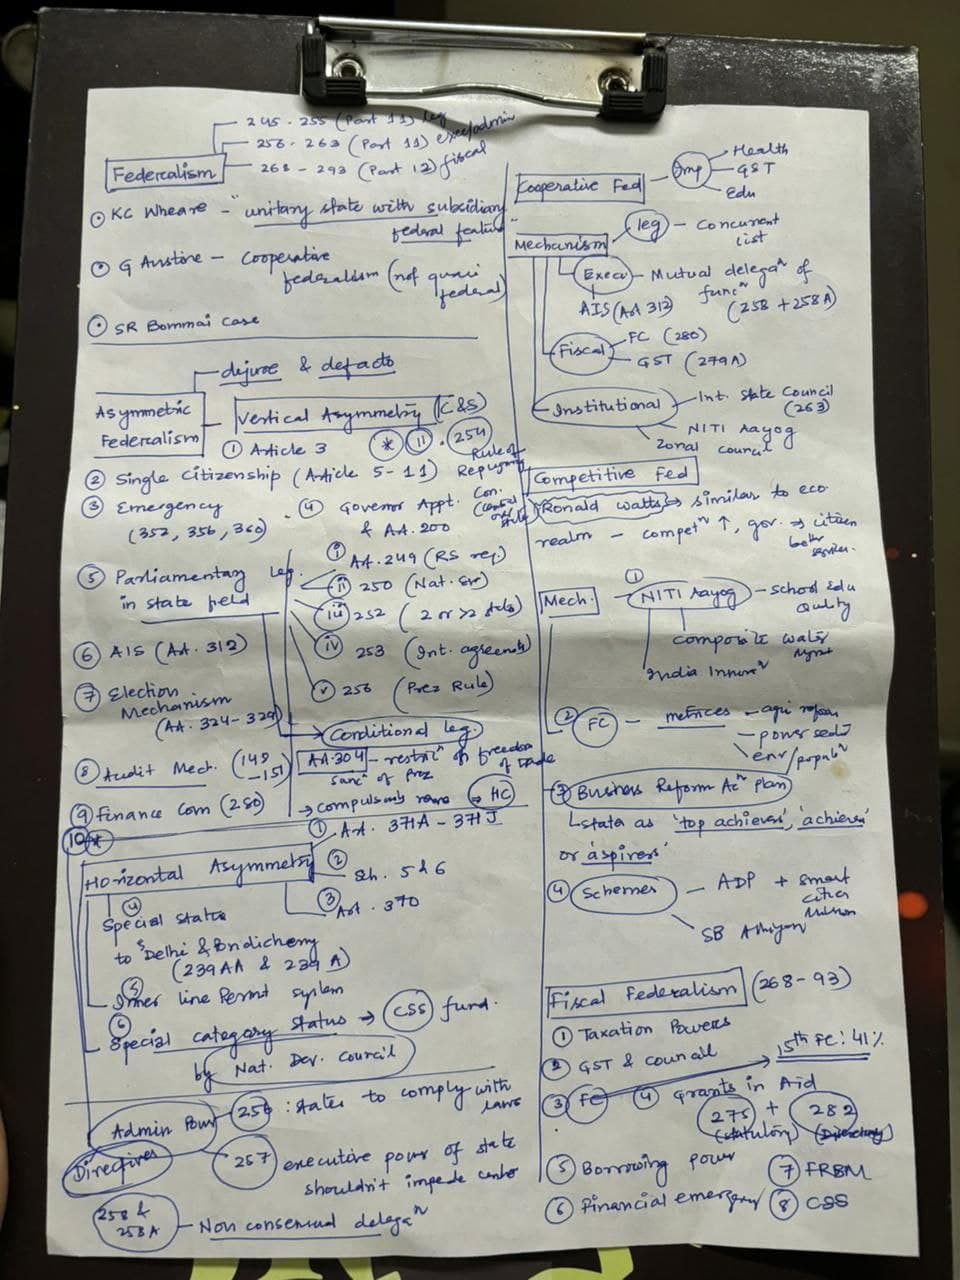 Federalism
245 - 255 (Part 11) leg
256 - 263 (Part 11) exec/admin
268 - 293 (Part 12) fiscal
KC Wheare - "unitary state with subsidiary
federal feature"
G Austine - Cooperative
federalism (not quasi
federal)
SR Bommai Case
dejure & defacto
Asymmetric
Federalism
Vertical Asymmetry (C&S)
① Article 3
* 11 . 254
Rule of
② Single Citizenship (Article 5-11)
③ Emergency
(352, 356, 360)
④ Governor Appt.
& AA.200
⑤ Parliamentary Leg.
in state field
i AA.249 (RS req.)
ii 250
iii 252 (2 or >2 states)
iv 253 (Int. agreements)
v 256 (Prez Rule)
⑥ AIS (AA. 312)
⑦ Election
Mechanism
(AA. 324-329)
Conditional leg.
AA.304 - restricⁿ on freedom
of trade
sancⁿ of prez
⑧ Audit Mech. (148
-151)
⑨ Finance Com (280)
→ HC
10 *
Horizontal Asymmetry
① AA. 371A - 371J
② Sch. 5 & 6
③ Art. 370
④ Special status
to Delhi & Pondicherry
(239AA & 239A)
⑤ Inner line Permit system
⑥ Special category status → CSS fund.
by Nat. Dev. Council
Admin Power
256 : states to comply with
laws
Directives
257 executive power of state
shouldn't impede center
258 &
258A - Non consensual delegaⁿ
Cooperative Fed
Imp
Health
GST
Edu
Mechanism
leg - Concurrent
list
Execu - Mutual delegaⁿ of
funcⁿ
(258 + 258A)
AIS (Art 312)
Fiscal
FC (280)
GST (279A)
Institutional
Int. state Council
(263)
NITI Aayog
Zonal council
Competitive Fed
Ronald watts → similar to eco
realm - competⁿ ↑, gov. → citizen
better
services.
Mech.
① NITI Aayog - school Edu
Quality
composite water
mgmt
India Innovⁿ
② FC - metrices - agri reform
power
env/populⁿ
③ Business Reform Acⁿ plan
states as 'top achievers', 'achievers'
or 'aspirers'
④ Schemes - ADP + smart
cities
Mission
SB Abhiyan
Fiscal Federalism (268-93)
① Taxation Powers
② GST & council
15th FC: 41%
③ FC
④ Grants in Aid
275 + 282
(statutory)
⑤ Borrowing power
⑦ FRBM
⑥ Financial emergency
⑧ CSS